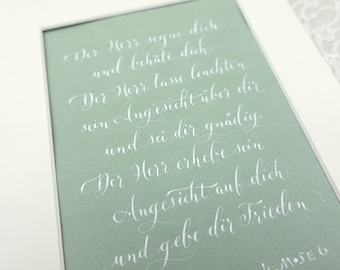 Der Herr segne dich
und behüte dich.
Der Herr lasse leuchten
sein Angesicht über dir
und sei dir gnädig.
Der Herr erhebe sein
Angesicht auf dich
und gebe dir Frieden!
MOSE 6